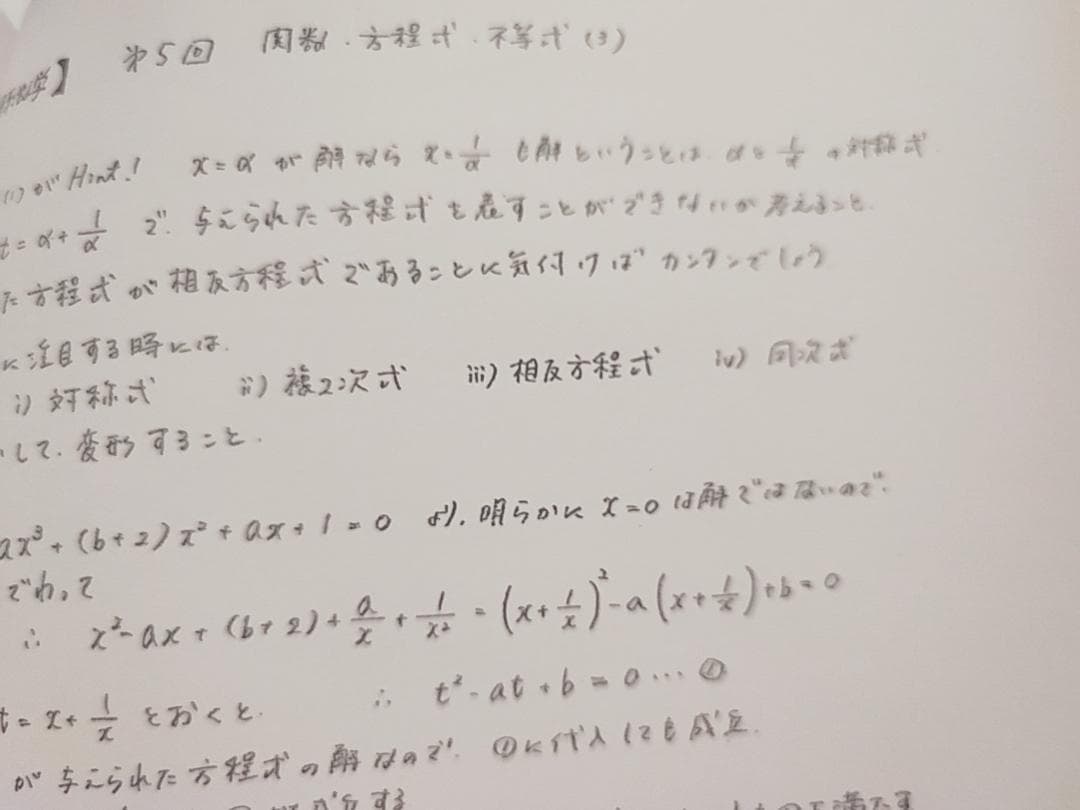 第5回 関数・方程式・不等式(3)
(1)がHint! x=αが解ならx=1/αも解ということは、αと1/αの対称式
t=α+1/αで、与えられた方程式を表すことができないか考えること.
た方程式が相反方程式であることに気付けばカンタンでしょう
に注目する時には.
i) 対称式 ii) 複2次式 iii) 相反方程式 iv) 同次式
して、変形すること.
ax³+(b+2)x²+ax+1=0 より、明らかにx=0は解ではないので.
でわって
∴ x²-ax+(b+2)+a/x+1/x²=(x+1/x)²-a(x+1/x)+b=0
t=x+1/xとおくと. ∴ t²-at+b=0…①
が与えられた方程式の解なので、①に代入しても成立.